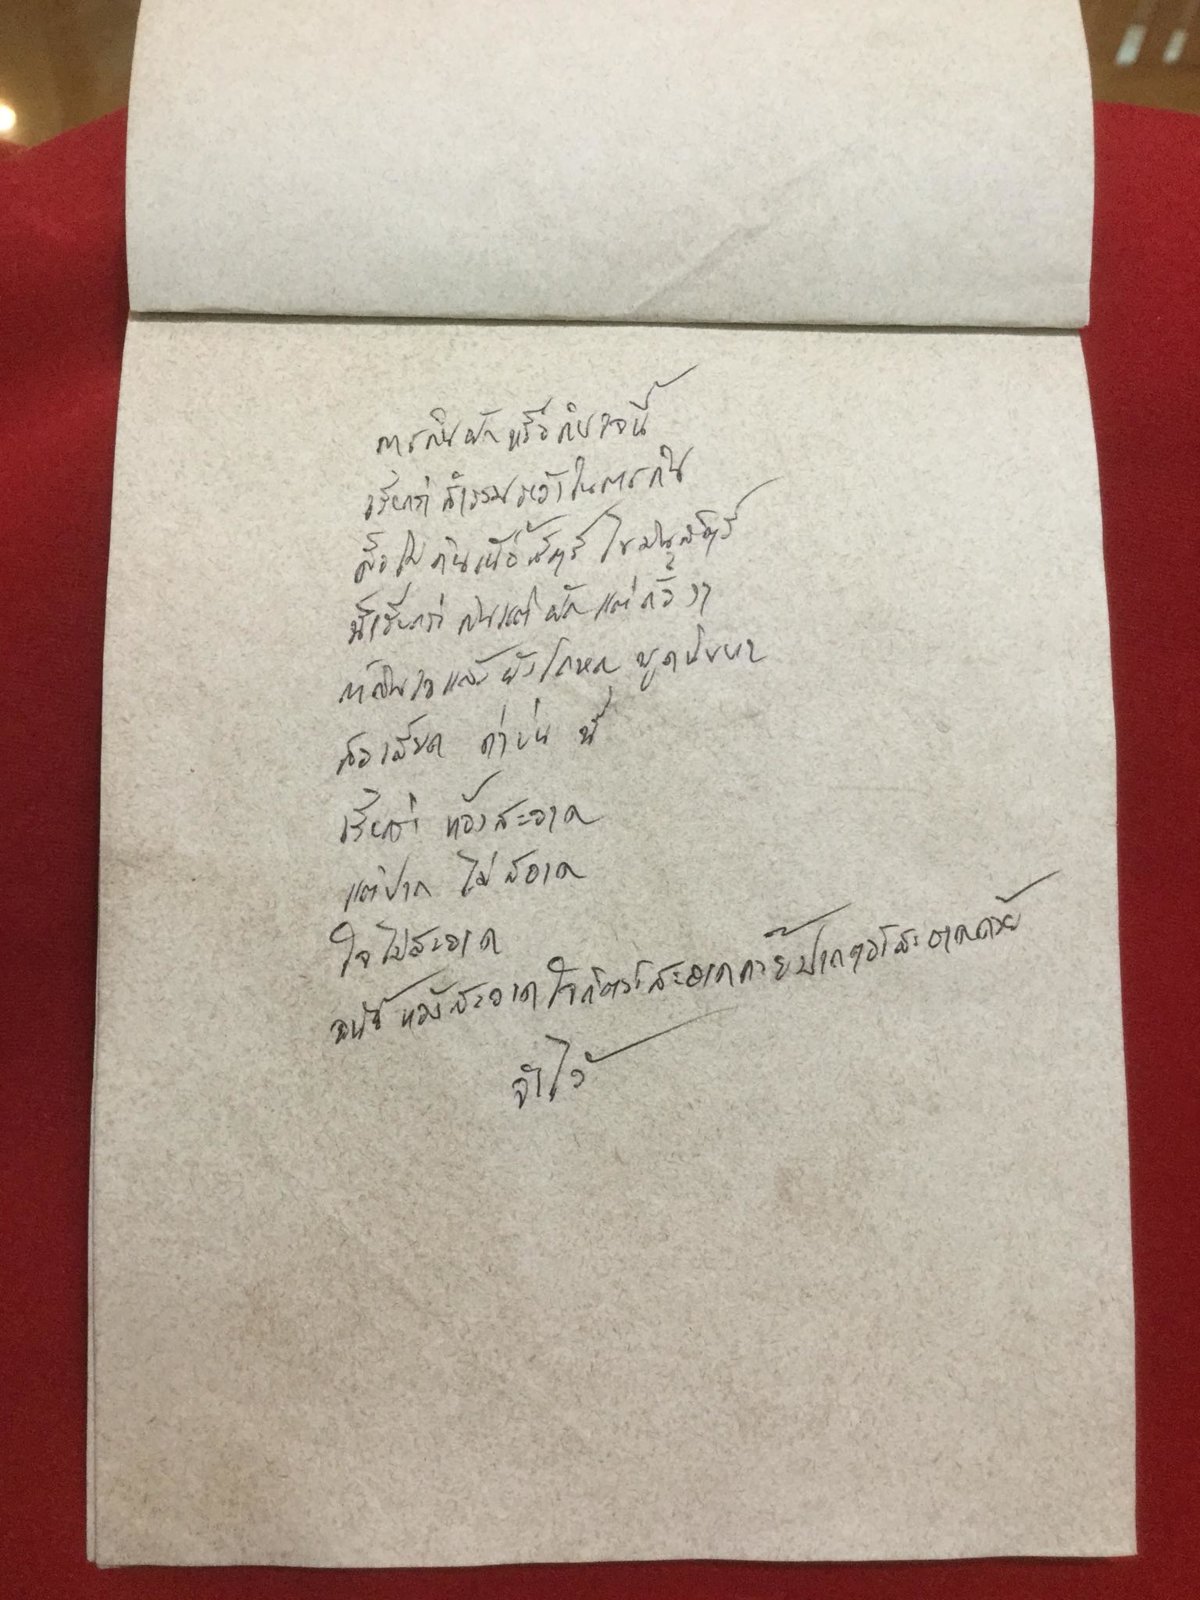 การกินผักหรือกินเจนี้
เรียกว่าสำรวมระวังในการกิน
คือไม่กินเนื้อสัตว์ ไขมันสัตว์
นี้เรียกว่า กินแต่ผักแต่ถั่วงา
ถ้ากินเจแล้วยังโกหก พูดนินทา
ส่อเสียด ด่าบ่น นี้
เรียกว่า ท้องสะอาด
แต่ปาก ไม่สอาด
ใจไม่สะอาด
ท้องสะอาด ใจก็ต้องสะอาดด้วย ปากต้องสะอาดด้วย
จำไว้